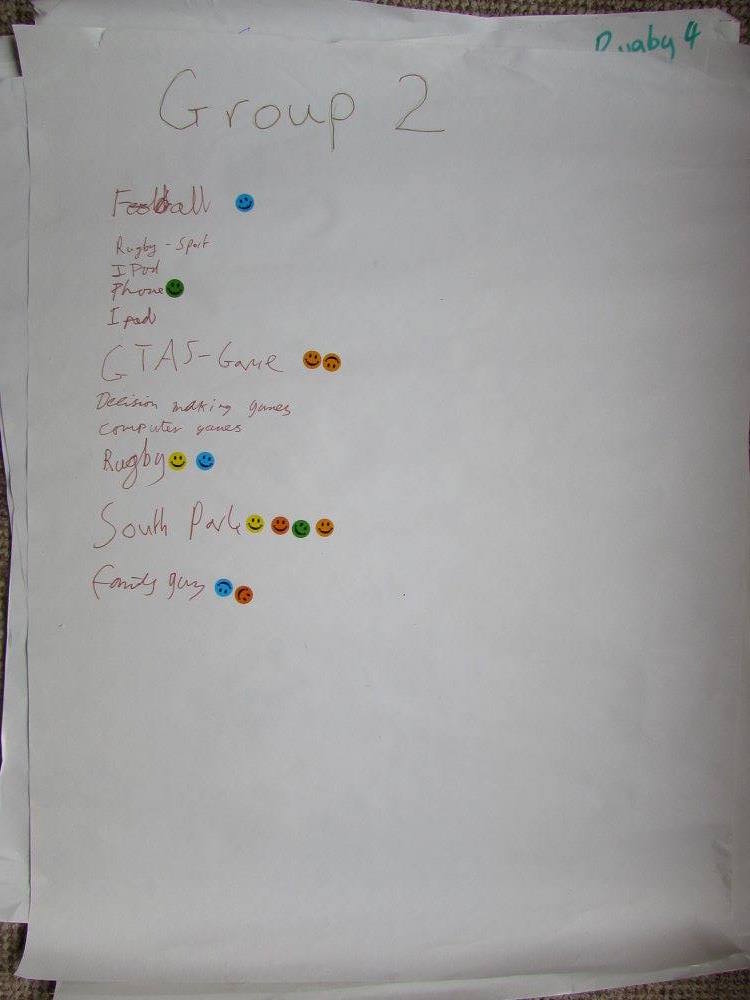 Rugby 4
Group 2
Football
Rugby - Sport
I Pod
Phone
I pad
GTA5-Game
Decision making games
computer games
Rugby
South Park
family guy